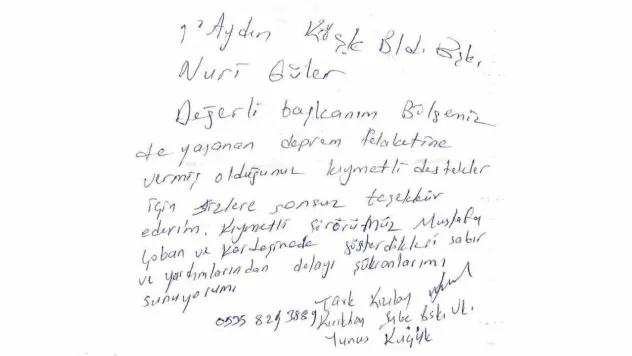 Aydın Köşk Bld. Bşk.
Nuri Güler
Değerli başkanım Bölgeniz
de yaşanan deprem felaketine
vermiş olduğunuz kıymetli destekler
için sizlere sonsuz teşekkür
ederim. Kıymetli şöförümüz Mustafa
Çoban ve kardeşinede gösterdikleri sabır
ve yardımlarından dolayı şükranlarımı
sunuyorum
Türk Kızılay
0535 829 3889 Kırıkhan Şube Bşk. Vk.
Yunus Küçük